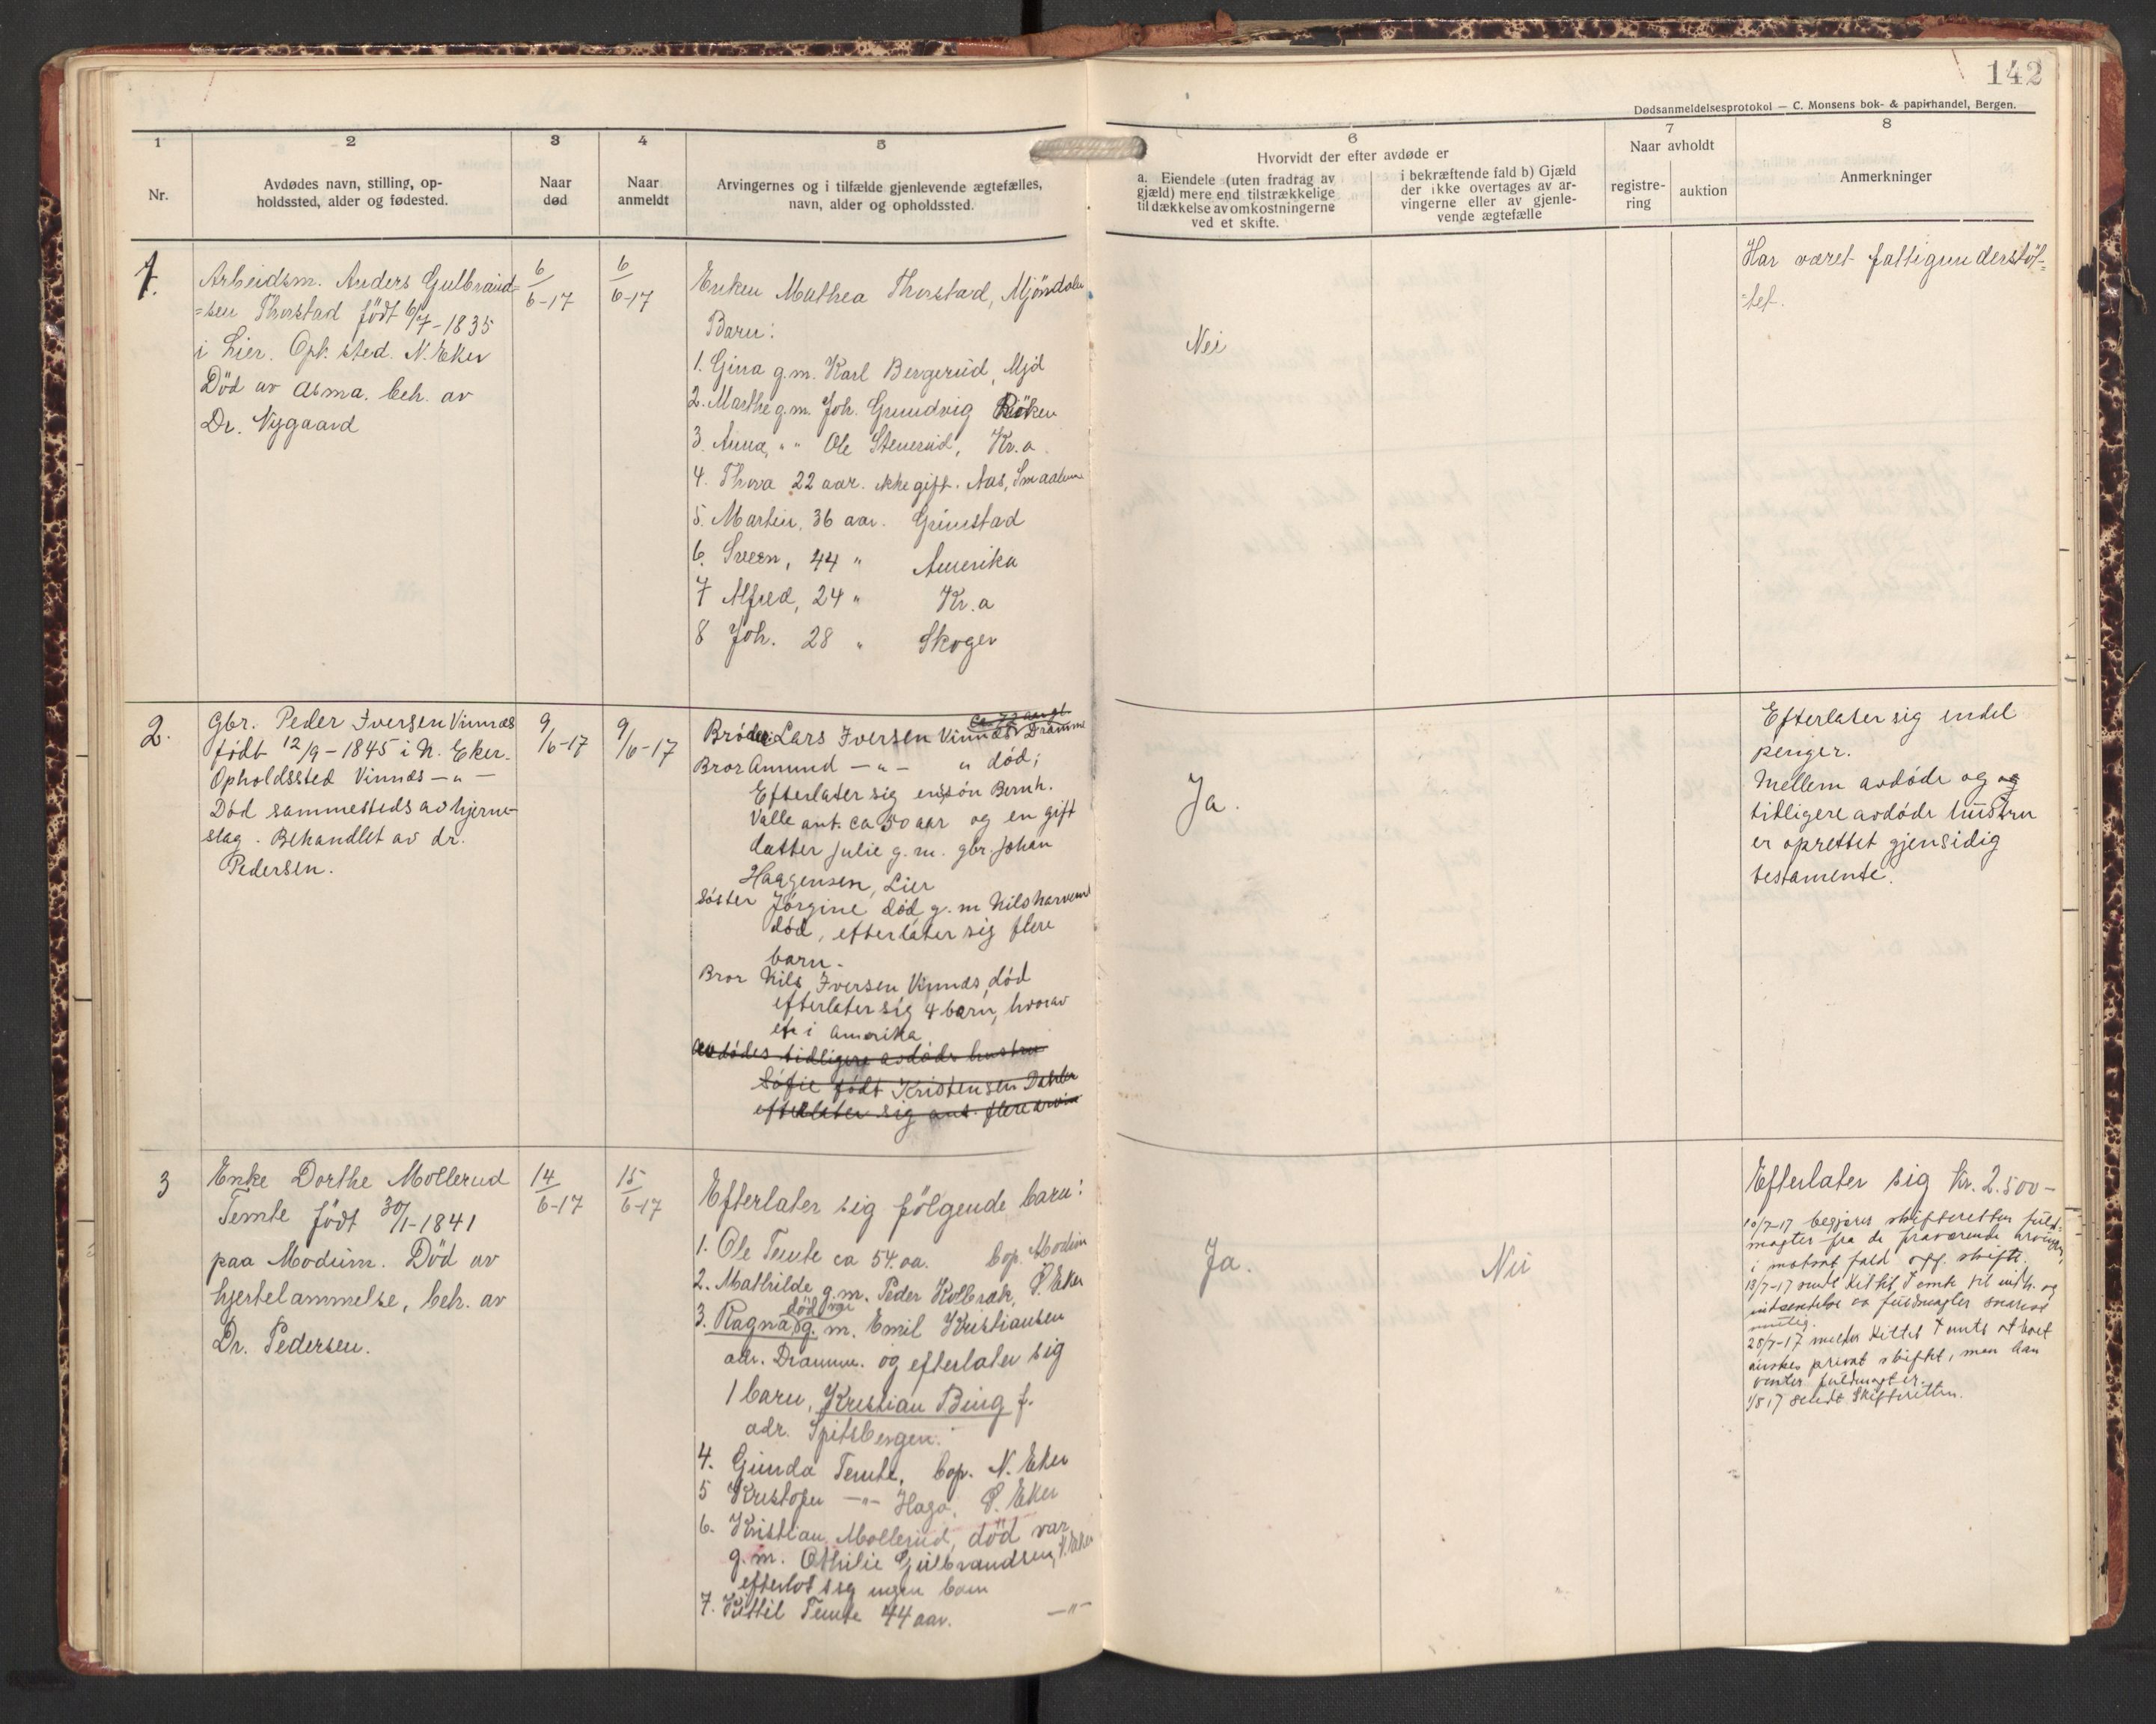 142
Dødsanmeldelsesprotokol — C. Monsens bok- & papirhandel, Bergen.
1
Nr.
2
Avdødes navn, stilling, op-
holdssted, alder og fødested.
3
Naar
død
4
Naar
anmeldt
5
Arvingernes og i tilfælde gjenlevende ægtefælles,
navn, alder og opholdssted.
6
Hvorvidt der efter avdøde er
a. Eiendele (uten fradrag av
gjæld) mere end tilstrækkelige
til dækkelse av omkostningerne
ved et skifte.
i bekræftende fald b) Gjæld
der ikke overtages av ar-
vingerne eller av gjenle-
vende ægtefælle
7
Naar avholdt
registre-
ring
auktion
8
Anmerkninger
1.
Arbeidsm. Anders Gulbrand=
=sen Thorstad født 6/7-1835
i Lier. Oph. sted. N. Eker
Död av asma. beh. av
Dr. Nygaard
6/6-17
6/6-17
Enken Mathea Thorstad, Mjöndalen
Barn:
1. Gina g.m. Karl Bergerud, Mjd
2. Marthe g.m. Joh. Grundvig Röken
3. Anna, " " Ole Stenerud, Kr.a.
4. Thora 22 aar. ikke gift. Aas, Smaalene
5. Martin, 36 aar. Grimstad
6. Sveen, 44 " Amerika
7 Alfred, 24 " Kr.a
8 Joh. 28 " Skoger
Nei
Har været fattigunderstöt=
=tet.
2.
Gbr. Peder Iversen Vinnæs
født 12/9-1845 i N. Eker.
Opholdssted Vinnæs -"-
Död sammesteds av hjerne-
slag. Behandlet av dr.
Pedersen.
9/6-17
9/6-17
Bröder Lars Iversen Vinnæs Dramme
Bror Amund -"- " död;
Efterlater sig en sön Bernh.
Valle ant. ca 50 aar og en gift
datter Julie g.m. gbr. Johan
Haagensen, Lier
Söster Jörgine död g.m Nils
död, efterlater sig flere
barn.
Bror Nils Iversen Vinnæs, död
efterlater sig 4 barn, hvorav
et i Amerika
avdödes tidligere avdöde hustru
Sofie født Kristensen
efterlater sig ant. flere
Ja.
Efterlater sig endel
penger.
Mellem avdöde og og
tidligere avdöde hustru
er oprettet gjensidig
testamente.
3
Enke Dorthe Mollerud
Temte født 30/1-1841
paa Modum. Död av
hjertelammelse, beh. av
Dr. Pedersen.
14/6-17
15/6-17
Efterlater sig fölgende barn:
1. Ole Temte ca 54. aa. bop. Modum
2. Mathilde g.m. Peder Kolbræk, Ø. Eker
död
3. Ragna g. m. Emil Kristiansen
adr. Dramm. og efterlater sig
1 barn, Kristian Bing f.
adr. Spitsbergen.
4. Gunda Temte, bop. N. Eker
5 Kristofer -"- Haga, Ø. Eker
6. Kristian Mollerud, död var
g.m. Othilie Gulbrandsen, N. Eker
efterlot sig ingen barn
7. Kittil Temte 44 aar. -"-
Ja.
Nei
Efterlater sig Kr. 2.500-
10/7-17 begjærer skifteretten fuld-
magter fra de fraværende arvinger,
i motsat fald off. skifte.
13/7-17 sendt Kittil Temte til indh. og
indsendelse av fuldmagter snarest
mulig.
28/7-17 melder Kittil Temte at boet
önskes privat skiftet, men han
venter fuldmagter.
1/8 17 sendt Skifteretten.